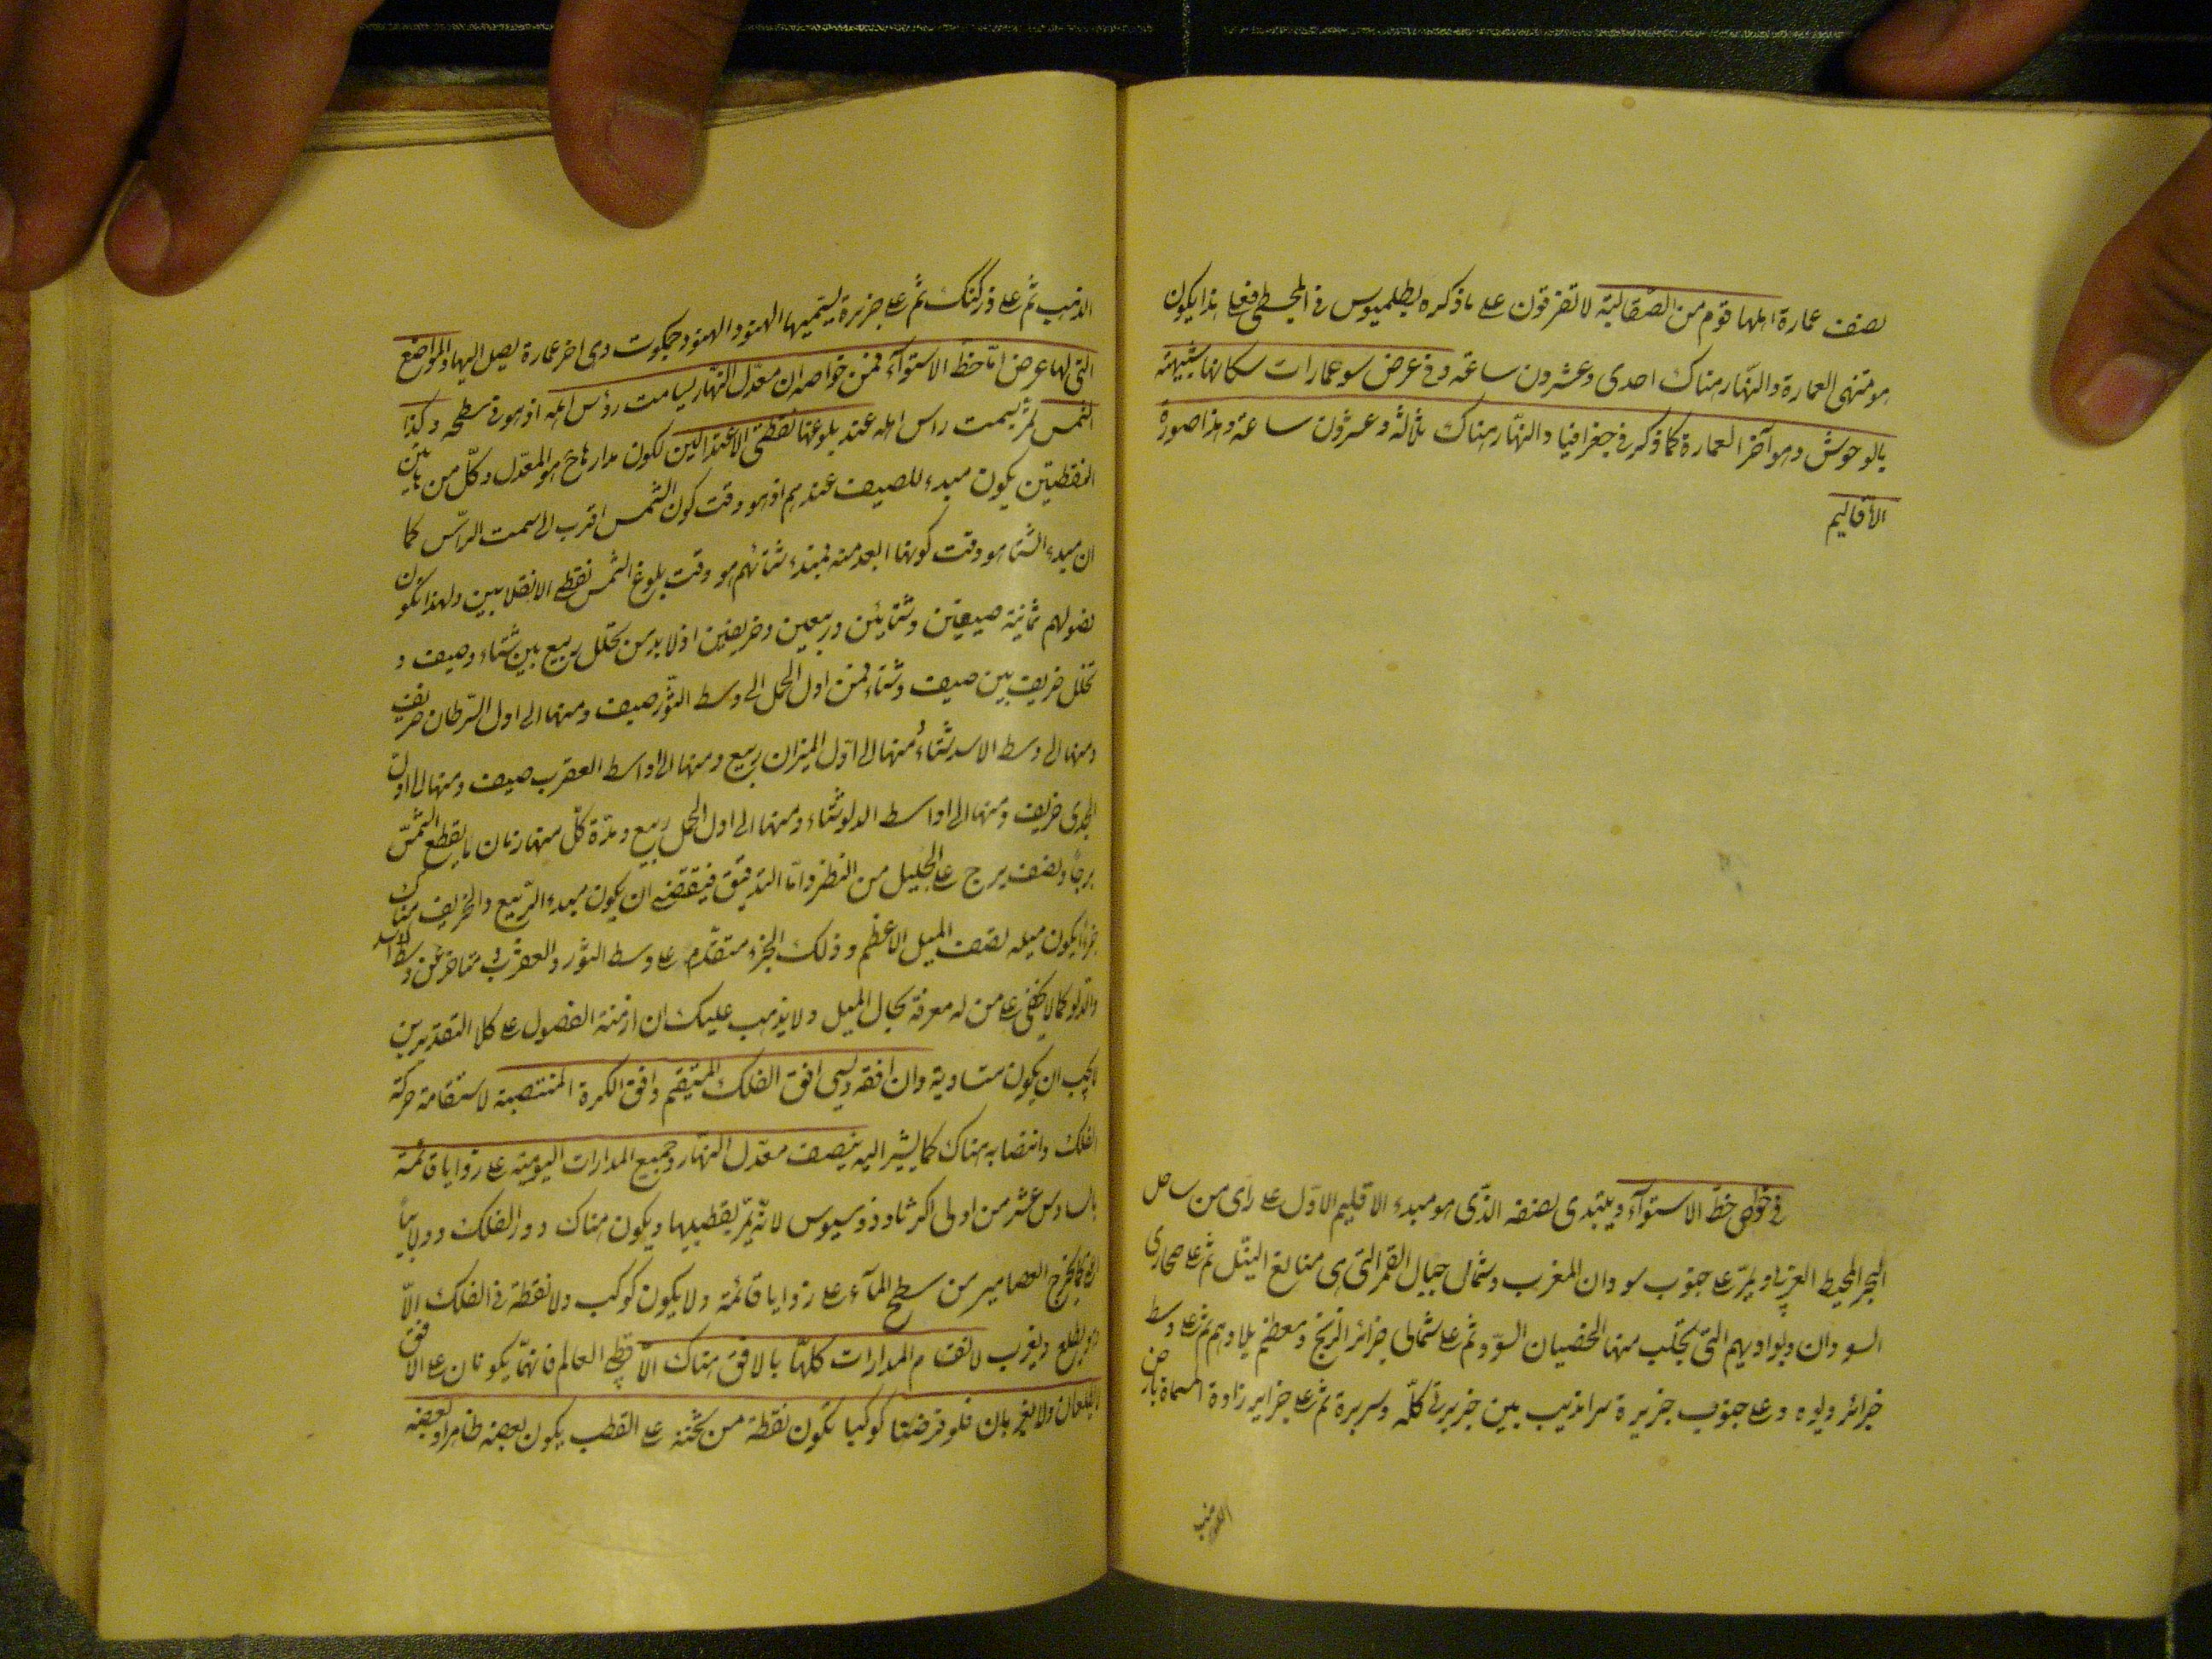 نصف عمارة اهلها قوم من الصّقالبة لا تعرفون على ما ذكره بطلميوس فى المجسطى فعلى هذا يكون
هو منتهى العمارة والنّهار هناك احدى وعشرون ساعة وفى عرض سو عمارات سكانها شبيهة
بالوحوش وهو آخر العمارة كما ذكر فى جغرافيا والنّهار هناك ثلاثة وعشرون ساعة وهذا صورة
الأقاليم
فى خواص خطّ الاستوآء ويبتدى نصفه الذّى هو مبدء الاقليم الاوّل على رأى من ساحل
البحر المحيط الغربى ويمرّ على جنوب سودان المغرب وشمال جبال القمر التى هى منابع النيّل ثم على صحارى
السودان وبواديهم التى تجلب منها الخصيان السّود ثم على شمالى جزائر الزنج ومعظم بلادهم ثم على وسط
جزائر ديوه وعلى جنوب جزيرة سرانديب بين جزيرتى كلّه وسربرة ثم على جزاير زاوة المسماة بارض
الذهب ثم على ذركنك ثم على جزيرة يسمّيها الهنود جمكوت وهى اخر عمارة يصل اليها والمواضع
التى لها عرض امّا خطّ الاستوآء فمن خواصه ان معدّل النّهار يسامت رؤس اهله اذ هو فى سطحه وكذا
الشمس تسمت راس اهله عند بلوغها نقطتى الاعتدالين لكون مدارها ح هو المعدّل وكلّ من هاتين
النقطتين يكون مبدء للصيف عندهم اذ هو وقت كون الشمس اقرب الى سمت الرّاس كما
ان مبدء الشتا هو وقت كونها ابعد منه فمبدء شتائهم هو وقت بلوغ الشمس نقطتى الانقلابين ولهذا تكون
فصولهم ثمانية صيفين وشتائين وربيعين وخريفين اذ لا بد من تخلل ربيع بين شتاء وصيف و
تخلل خريف بين صيف وشتاء فمن اول الحمل الى وسط الثّور صيف ومنها الى اول السّرطان خريف
ومنها الى وسط الاسد شتاء ومنها الى اوّل الميزان ربيع ومنها الى اواسط العقرب صيف ومنها الى اوّل
الجدى خريف ومنها الى اواسط الدلو شتاء ومنها الى اول الحمل ربيع ومدّة كلّ منها زمان ما يقطع الشمسّ
برجاً ونصف برج على الجليل من النظر وامّا التدقيق فيقتضى ان يكون مبدء الرّبيع والخريف هناك
جزءا يكون ميله نصف الميل الاعظم وذلك الجزء متقدّم على وسط الثّور والعقرب ومتاخر عن وسط الاسد
والدلو كما لا يخفى على من له معرفة بحال الميل ولا يذهب عليك ان ازمنة الفصول على كلا التقديرين
لا يجب ان يكون متساوية وان افقه ويسمى افق الفلك المستقيم وافق الكرة المنتصبة لاستقامة حركة
الفلك وانتصابه هناك كما يشير اليه ينصف معدّل النّهار وجميع المدارات اليومية على زوايا قائمة
بالسادس عشر من اولى اكر ثاوذوسيوس لانّه يمرّ بقطبيها ويكون هناك دور الفلك دولابياً
اى كما يخرج العصامير من سطح المآء على زوايا قائمة ولا يكون كوكب ولا نقطة فى الفلك الاّ
وهو يطلع ويغرب لانقسام المدارات كلّها بالافق هناك الاّ قطبى العالم فانهمّا يكونان على الافق
لا يطلعان ولا يغربان فلو فرضنا كوكبا يكون نقطة من ثخنه على القطب يكون بعضه ظاهرا وبعضه